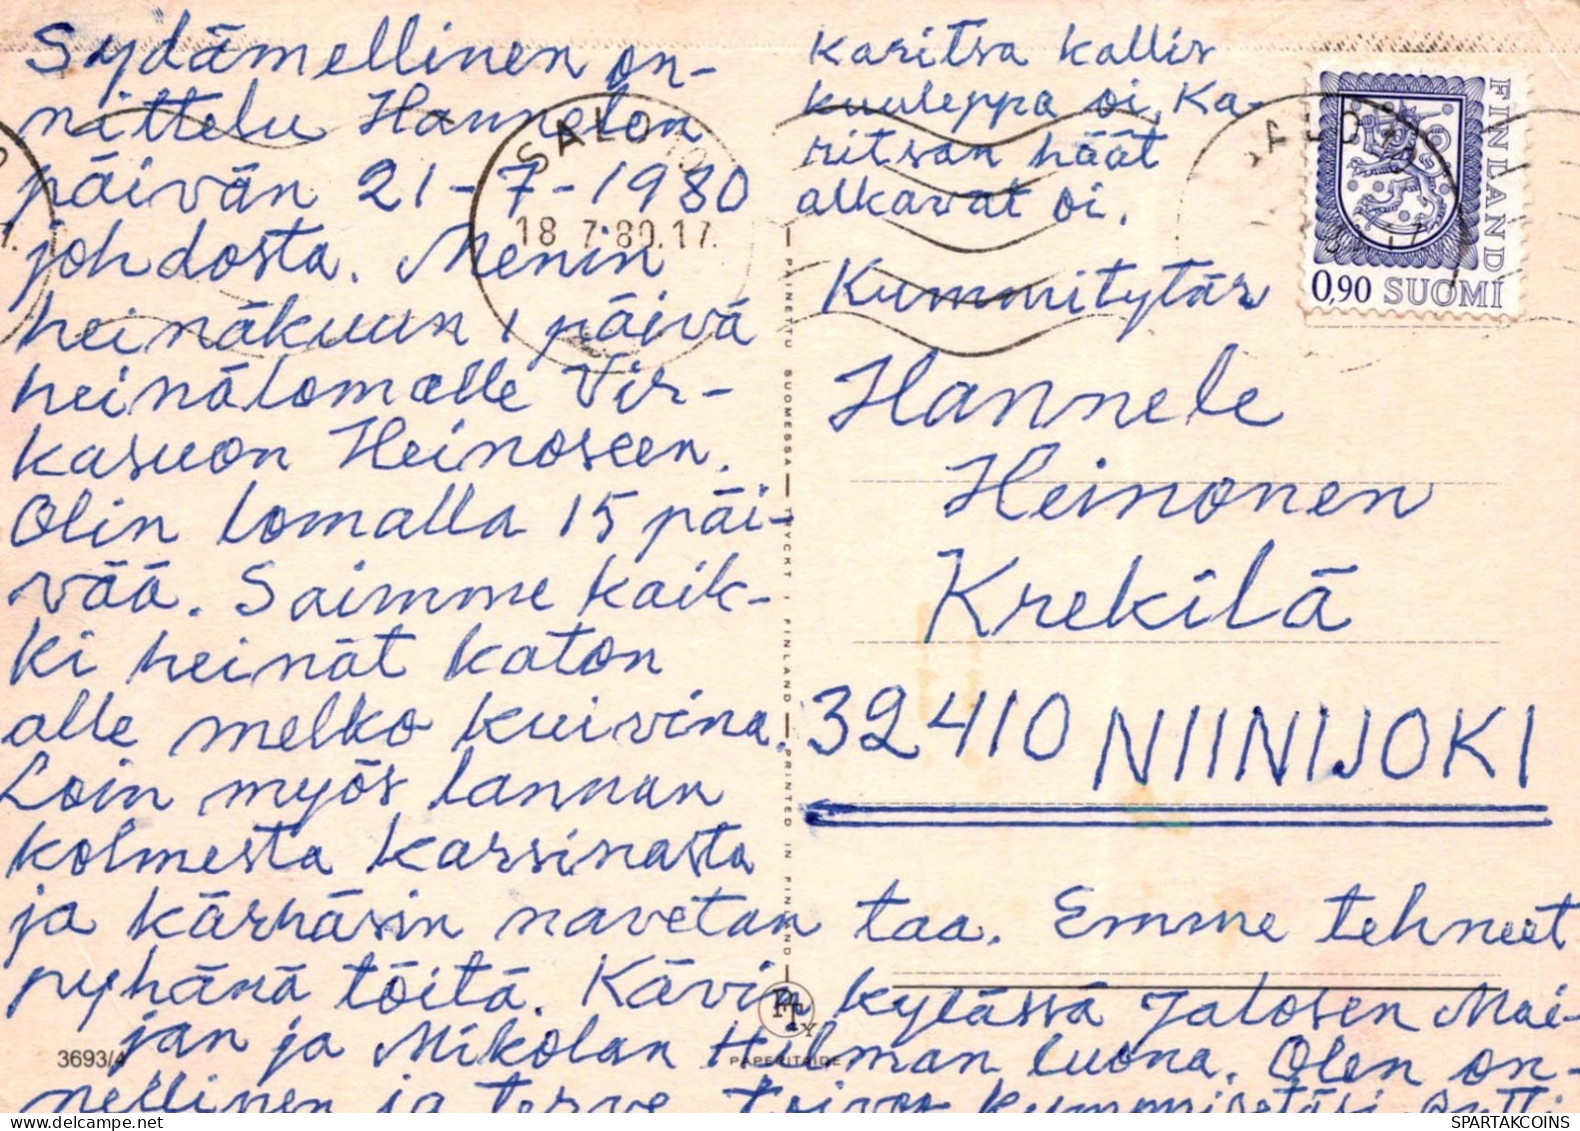 Sydämellinen on-
nittelu Hannelen
päivän 21-7-1980
johdosta. Menin
heinäkuun 1 päivä
heinälomalle Vir-
kasuon Heinoseen.
Olin lomalla 15 päi-
vää. Saimme kaik-
ki heinät katon
alle melko kuivina.
Loin myös lannan
kolmesta karsinasta
ja kärräsin navetan taa. Emme tehneet
pyhänä töitä. Kävin kylässä Jalosen Mai-
jan ja Mikolan Hilman luona. Olen on-
nellinen ja terve toivoo kummisetäsi
Karitsa kallis
kuuleppa oi, Ka-
ritsan häät
alkavat oi.
Kummitytär
Hannele
Heinonen
Krekilä
32410 NIINIJOKI
SALO 10
18.7.80.17.
FINLAND
0,90 SUOMI
PAINETTU SUOMESSA — TRYCKT I FINLAND — PRINTED IN FINLAND
PAPERITAIDE
3693/4
SPARTAKCOINS.COM